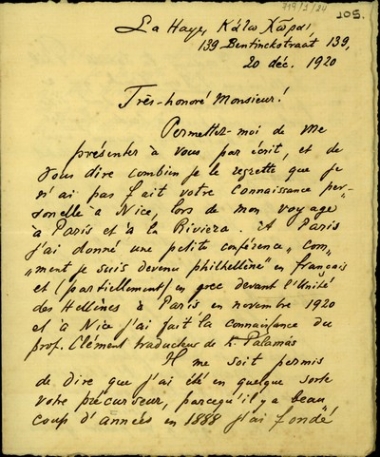 105.
La Haye, Κάτω Χῶραι,
139 Bentinckstraat 139,
20 déc. 1920
Très-honoré Monsieur!
Permettez-moi de me
présenter à vous par écrit, et de
vous dire combien je le regrette que je
n'ai pas fait votre connaissance per-
sonelle à Nice, lors de mon voyage
à Paris et à la Riviera. A Paris
j'ai donné une petite conférence „Com-
„ment je suis devenu philhellène" en français
et (partiellement) en grec devant l'Unité
des Hellènes à Paris en novembre 1920
et à Nice j'ai fait la connaissance du
prof. Clément traducteur de K. Palamás
Il me soit permis
de dire que j'ai été en quelque sorte
votre précurseur, parcequ'il y a beau
coup d'années en 1888 j'ai fondé